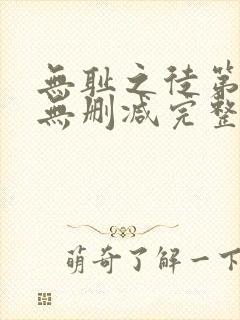 無耻之徒第
無删减完整
萌奇了解一下